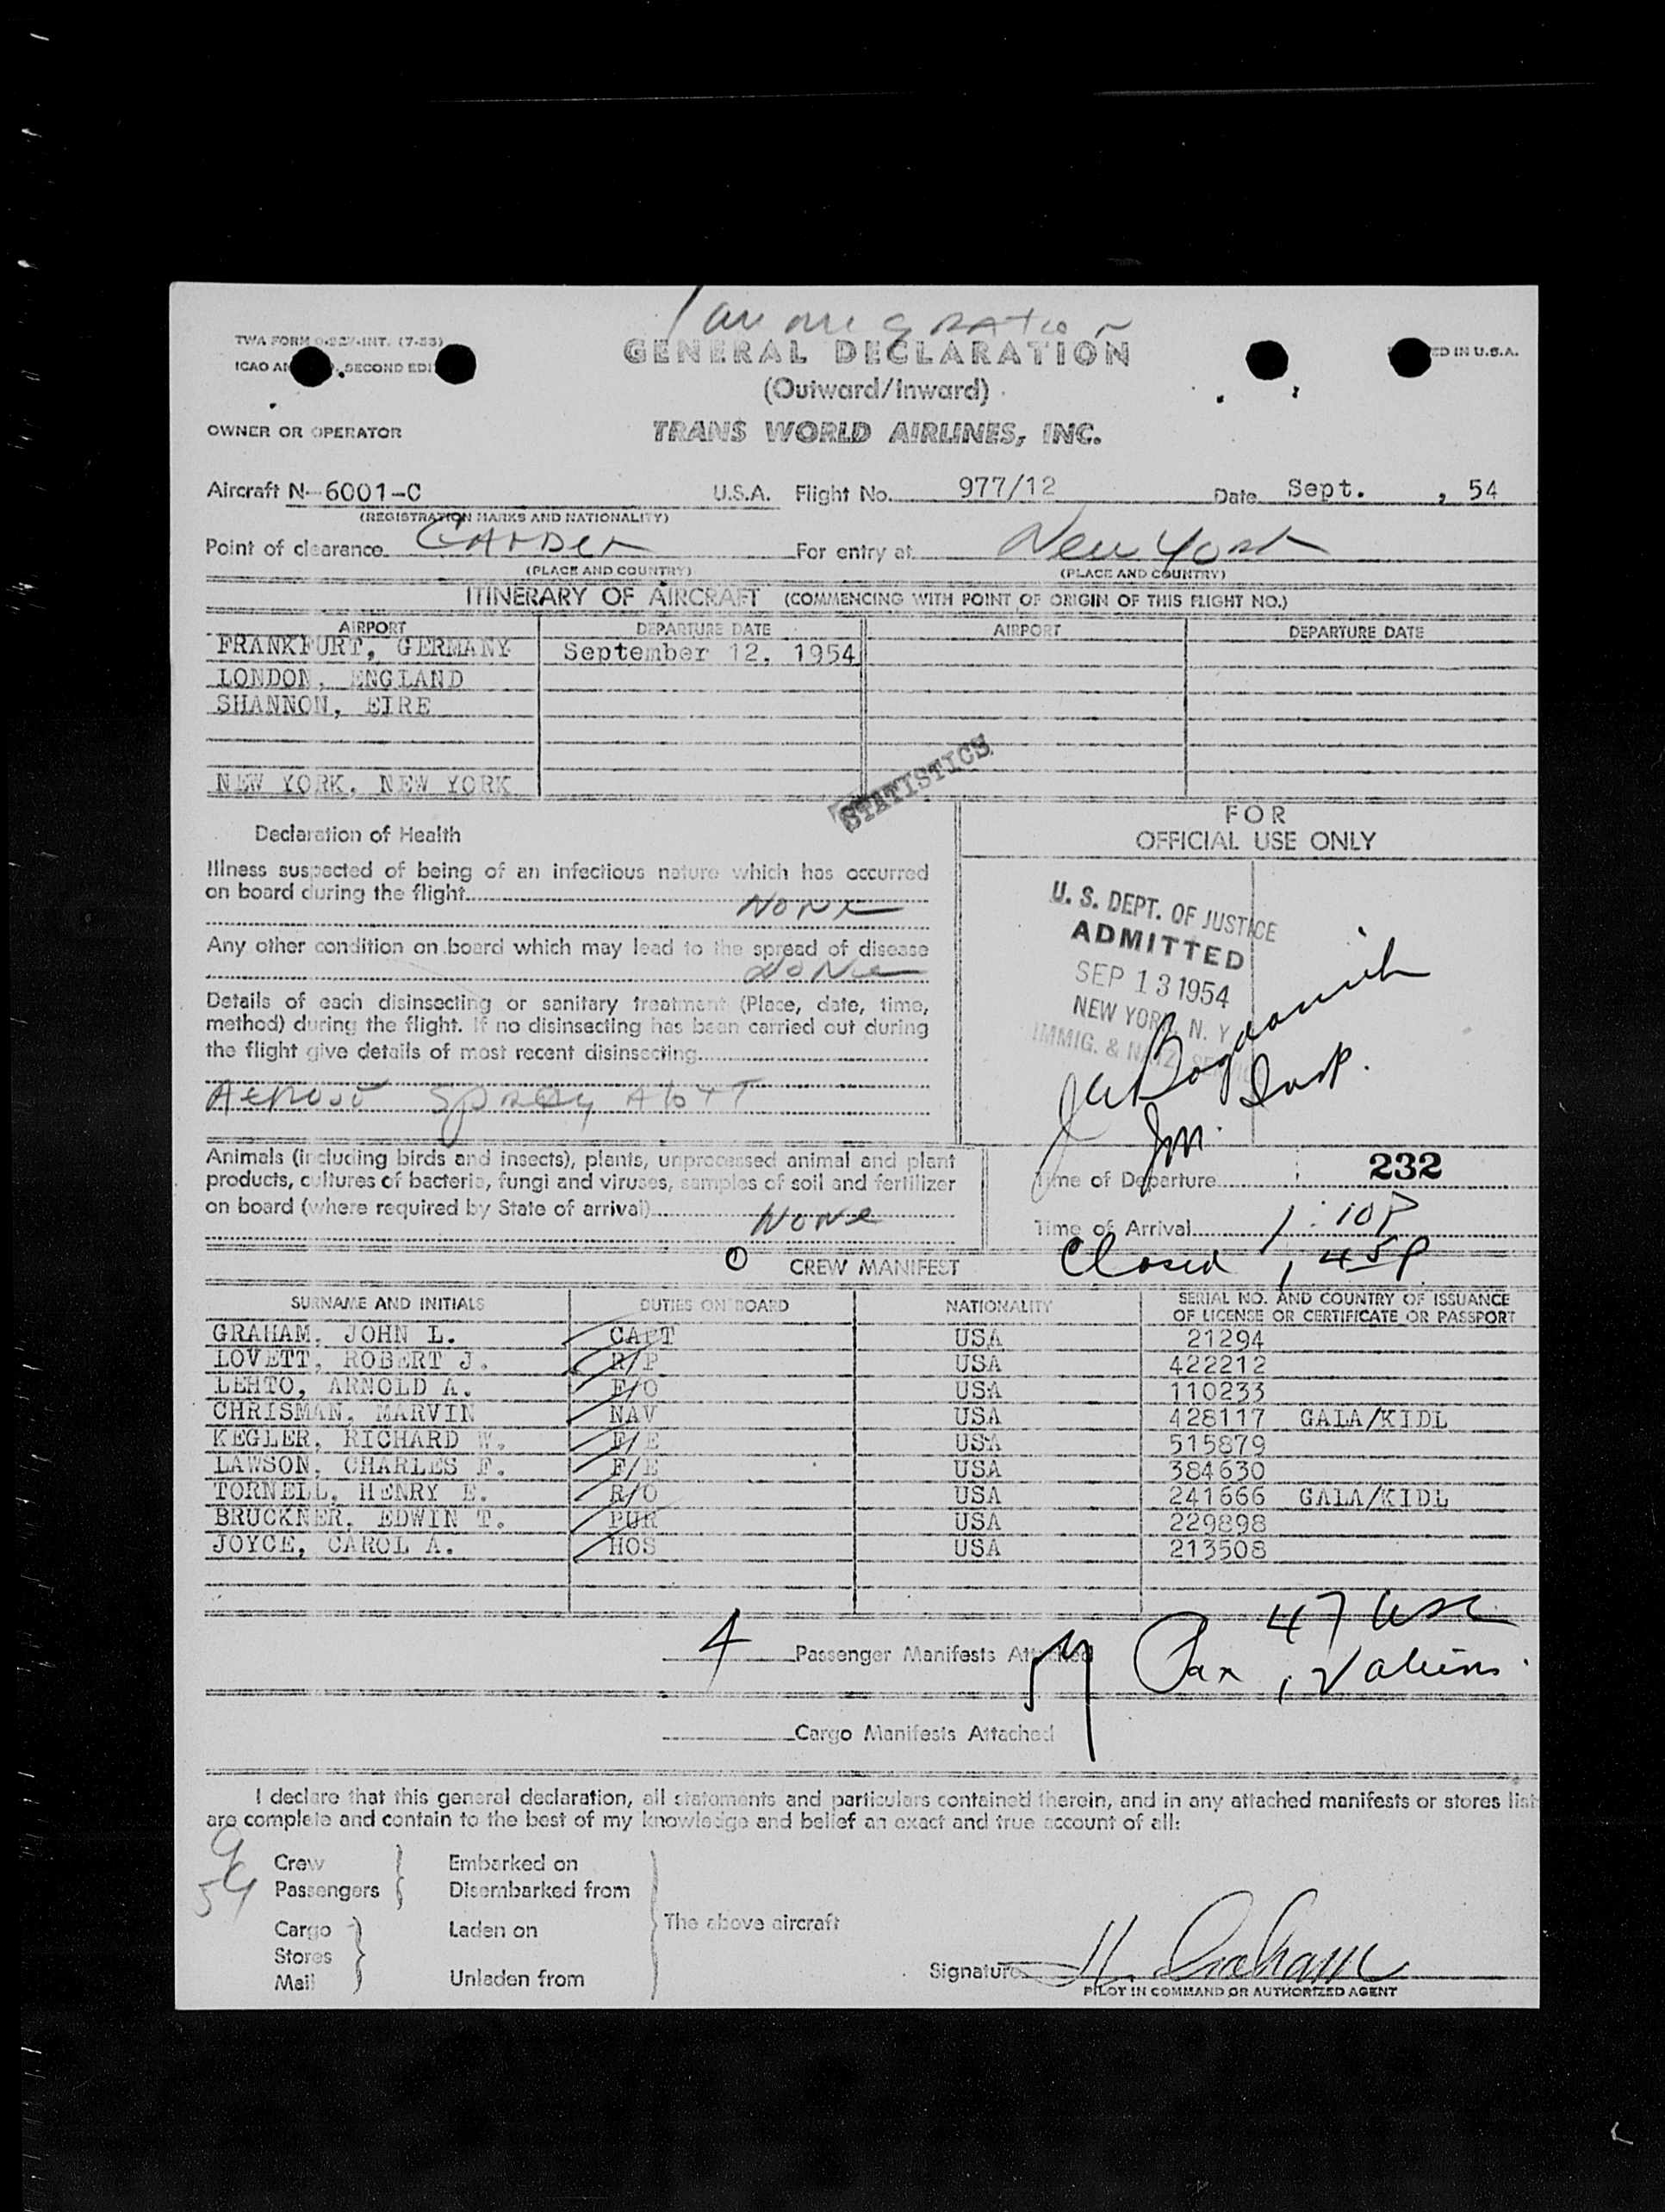 Immigration
TWA FORM
ICAO SECOND EDI
GENERAL DECLARATION
ED IN U.S.A.
(Outward/Inward)
OWNER OR OPERATOR
TRANS WORLD AIRLINES, INC.
Aircraft N-6001-C U.S.A. Flight No. 977/12 Date Sept. , 54
(REGISTRATION MARKS AND NATIONALITY)
Point of clearance For entry at New York
(PLACE AND COUNTRY) (PLACE AND COUNTRY)
ITINERARY OF AIRCRAFT (COMMENCING WITH POINT OF ORIGIN OF THIS FLIGHT NO.)
AIRPORT DEPARTURE DATE AIRPORT DEPARTURE DATE
FRANKFURT, GERMANY September 12, 1954
LONDON, ENGLAND
SHANNON, EIRE
NEW YORK, NEW YORK
STATISTICS
Declaration of Health
Illness suspected of being of an infectious nature which has occurred
on board during the flight None
Any other condition on board which may lead to the spread of disease
None
Details of each disinsecting or sanitary treatment (Place, date, time,
method) during the flight. If no disinsecting has been carried out during
the flight give details of most recent disinsecting
Spray
FOR
OFFICIAL USE ONLY
U. S. DEPT. OF JUSTICE
ADMITTED
SEP 13 1954
NEW YORK, N. Y.
IMMIG. &
Im. Insp.
Animals (including birds and insects), plants, unprocessed animal and plant
products, cultures of bacteria, fungi and viruses, samples of soil and fertilizer
on board (where required by State of arrival) None
Time of Departure 232
Time of Arrival 1:10P
Closed 1:45P
CREW MANIFEST
SURNAME AND INITIALS DUTIES ON BOARD NATIONALITY SERIAL NO. AND COUNTRY OF ISSUANCE
OF LICENSE OR CERTIFICATE OR PASSPORT
GRAHAM, JOHN L. CAPT USA 21294
LOVETT, ROBERT J. R/P USA 422212
LEHTO, ARNOLD A. F/O USA 110233
CHRISMAN, MARVIN NAV USA 428117 GALA/KIDL
KEGLER, RICHARD W. F/E USA 515879
LAWSON, CHARLES F. F/E USA 384630
TORNELL, HENRY E. R/O USA 241666 GALA/KIDL
BRUCKNER, EDWIN T. PUR USA 229898
JOYCE, CAROL A. HOS USA 213508
47 USC
4 Passenger Manifests Attached 59 Pax 12 aliens
Cargo Manifests Attached
I declare that this general declaration, all statements and particulars contained therein, and in any attached manifests or stores list
are complete and contain to the best of my knowledge and belief an exact and true account of all:
9 Crew Embarked on
59 Passengers Disembarked from
The above aircraft
Cargo Laden on
Stores
Mail Unladen from
Signature Graham
PILOT IN COMMAND OR AUTHORIZED AGENT